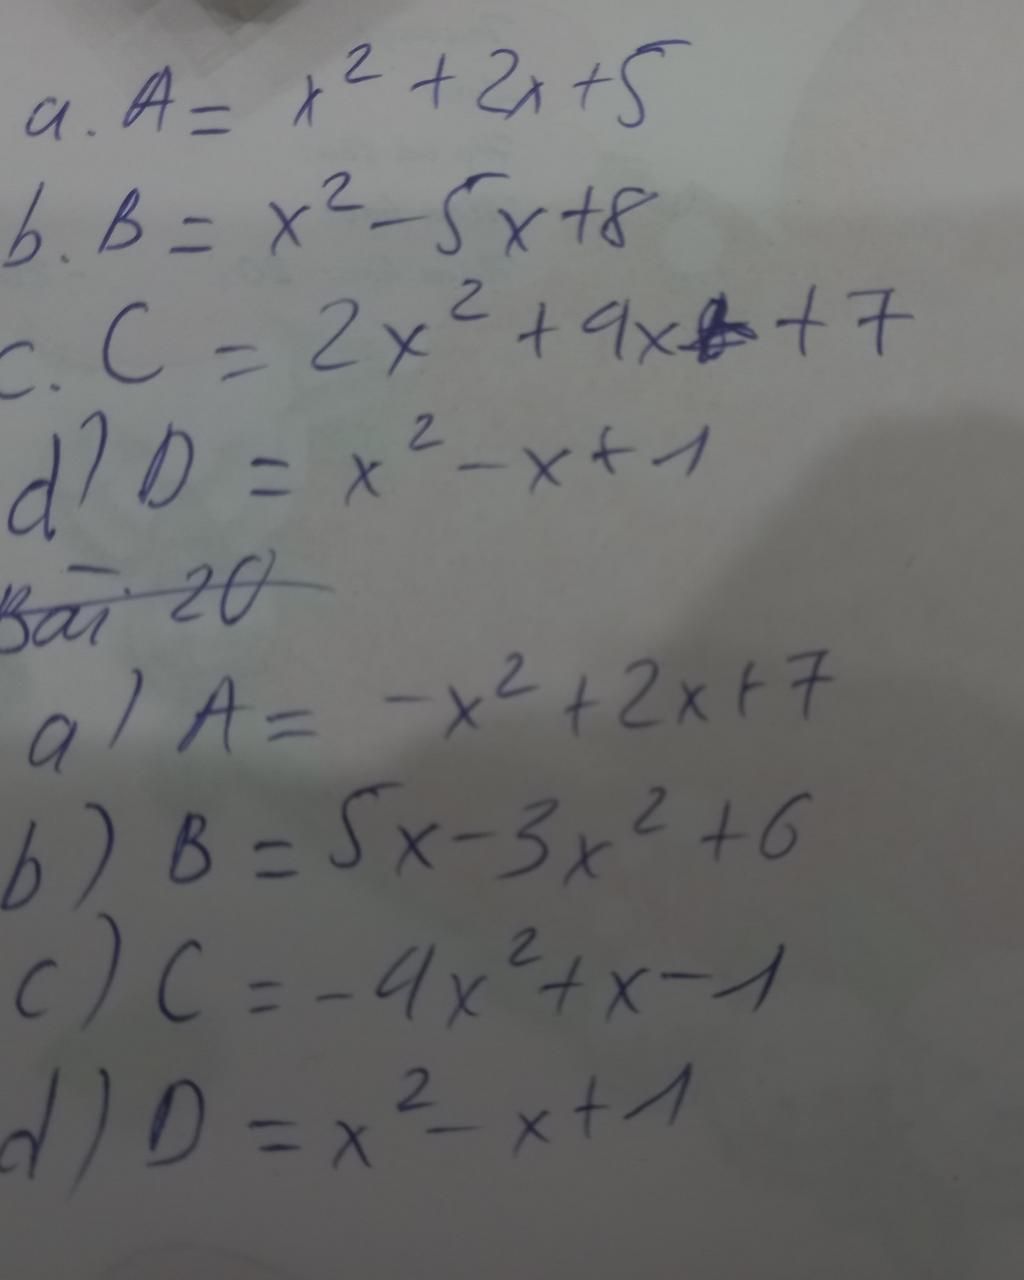 a. A = x² + 2x + 5
b. B = x² - 5x + 8
c. C = 2x² + 4x + 7
d) D = x² - x + 1
Bài 20
a) A = -x² + 2x + 7
b) B = 5x - 3x² + 6
c) C = -4x² + x - 1
d) D = x² - x + 1